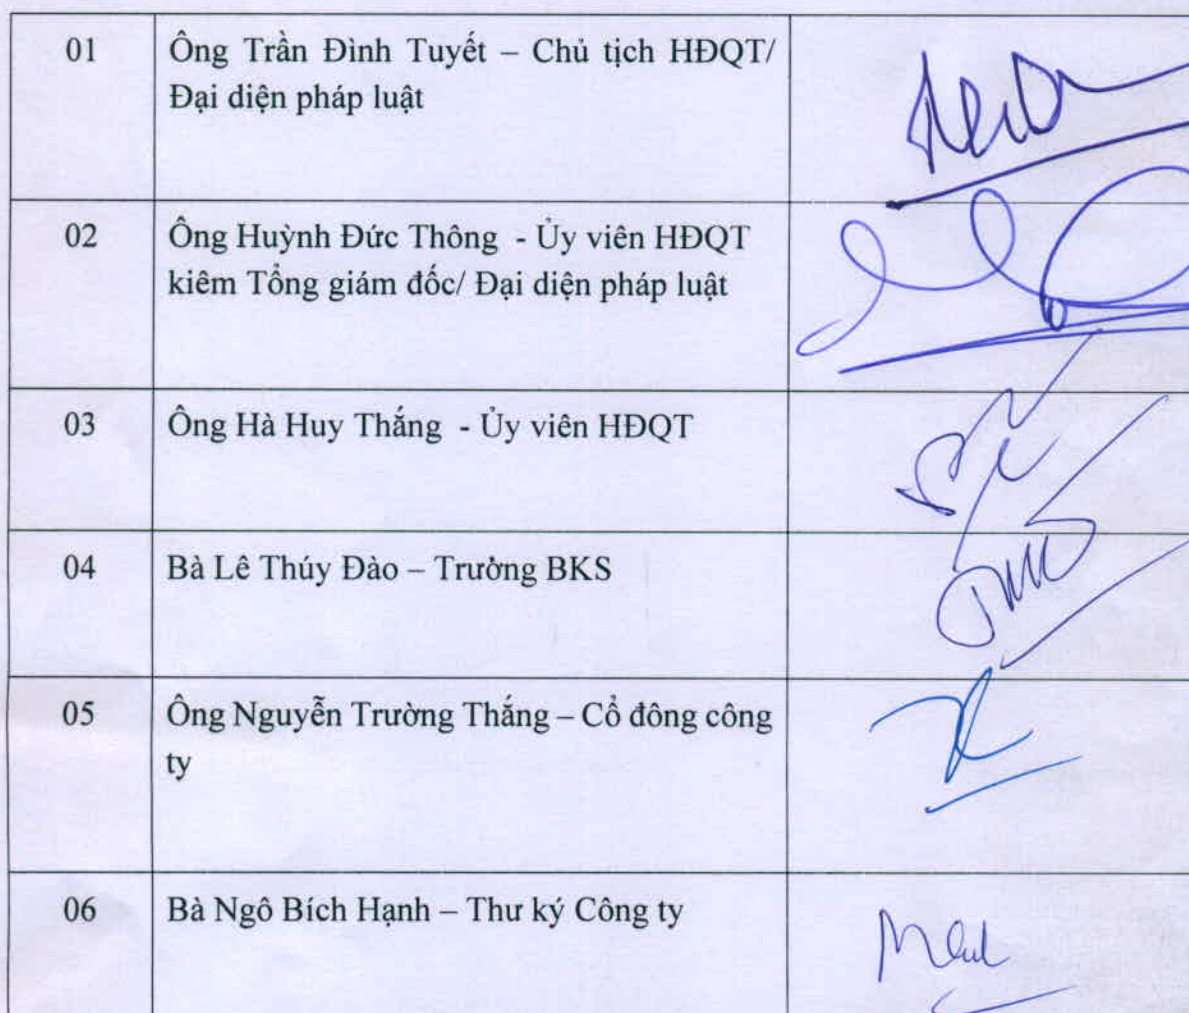 01 Ông Trần Đình Tuyết – Chủ tịch HĐQT/
Đại diện pháp luật
02 Ông Huỳnh Đức Thông - Ủy viên HĐQT
kiêm Tổng giám đốc/ Đại diện pháp luật
03 Ông Hà Huy Thắng - Ủy viên HĐQT
04 Bà Lê Thúy Đào – Trưởng BKS
05 Ông Nguyễn Trường Thắng – Cổ đông công
ty
06 Bà Ngô Bích Hạnh – Thư ký Công ty